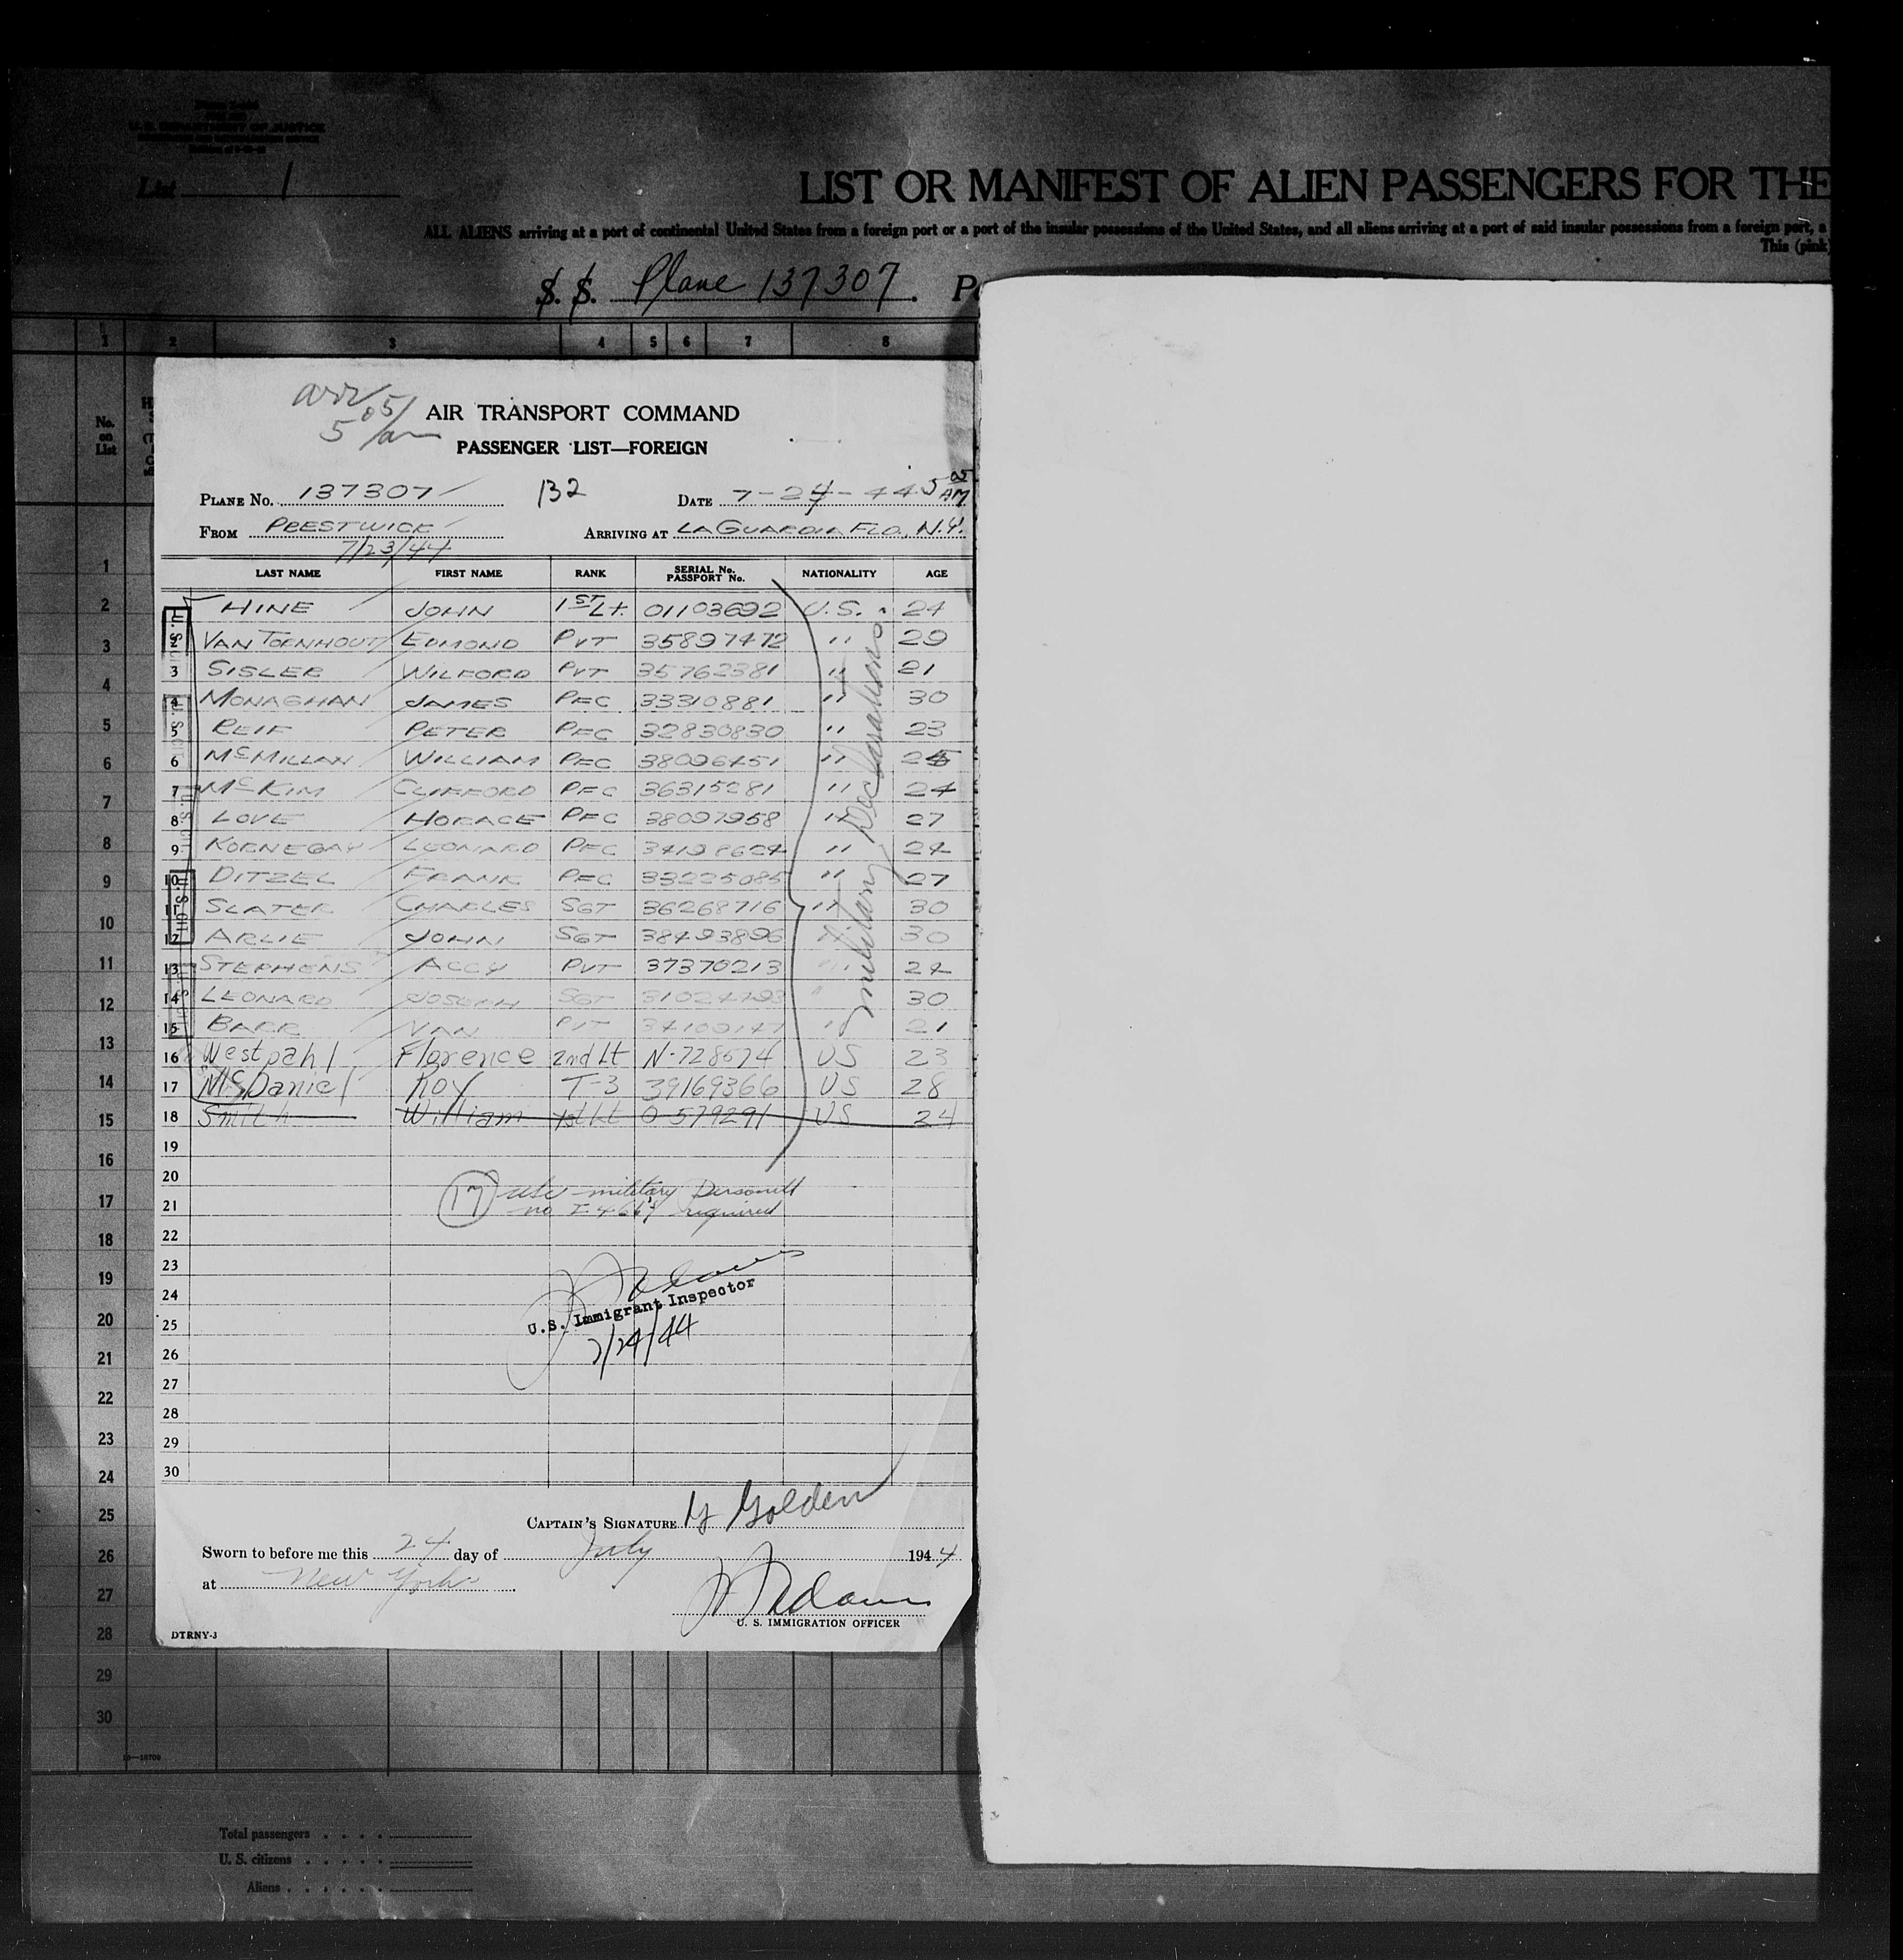 U. S. DEPARTMENT OF JUSTICE
List 1
LIST OR MANIFEST OF ALIEN PASSENGERS FOR THE
ALL ALIENS arriving at a port of continental United States from a foreign port or a port of the insular possessions of the United States, and all aliens arriving at a port of said insular possessions from a foreign port, a
This (pink
S. S. Plane 137307. P
1 2 3 4 5 6 7 8
No. on List
arr 5 05/am
AIR TRANSPORT COMMAND
PASSENGER LIST—FOREIGN
PLANE No. 137307 132 DATE 7-24-44 5 05 AM
FROM PRESTWICK ARRIVING AT LAGUARDIA FLD., N.Y.
7/23/44
LAST NAME FIRST NAME RANK SERIAL No. PASSPORT No. NATIONALITY AGE
HINE JOHN 1ST Lt. 01103692 U.S. 24
2 VAN TORNHOUT EDMOND PVT 35897472 " 29
3 SISLER WILFORD PVT 35762381 " 21
4 MONAGHAN JAMES PFC 33310881 " 30
5 REIF PETER PFC 32830830 " 23
6 McMILLAN WILLIAM PFC 38096451 " 25
7 McKIM CLIFFORD PFC 36315281 " 24
8 LOVE HORACE PFC 38097958 " 27
9 KORNEGAY LEONARD PFC 34198624 " 24
10 DITZEL FRANK PFC 33225085 " 27
11 SLATER CHARLES SGT 36268716 " 30
12 ARLIE JOHN SGT 38493896 " 30
13 STEPHENS ACCY PVT 37370213 " 24
14 LEONARD JOSEPH SGT 31024793 " 30
15 BARR VAN PVT 34100147 " 21
16 Westpahl Florence 2nd Lt N-728574 US 23
17 McDaniel Roy T-3 39169366 US 28
18 Smith William 1st Lt O-579291 US 24
military Declarations
19
20
21
22
23
24
25
26
27
28
29
30
17 military Personell
no I-466's required
U.S. Immigrant Inspector
7/24/44
CAPTAIN'S SIGNATURE G Golden
Sworn to before me this 24 day of July 1944
at New York
Adams
U. S. IMMIGRATION OFFICER
DTRNY-3
1
2
3
4
5
6
7
8
9
10
11
12
13
14
15
16
17
18
19
20
21
22
23
24
25
26
27
28
29
30
16—18709
Total passengers
U. S. citizens
Aliens